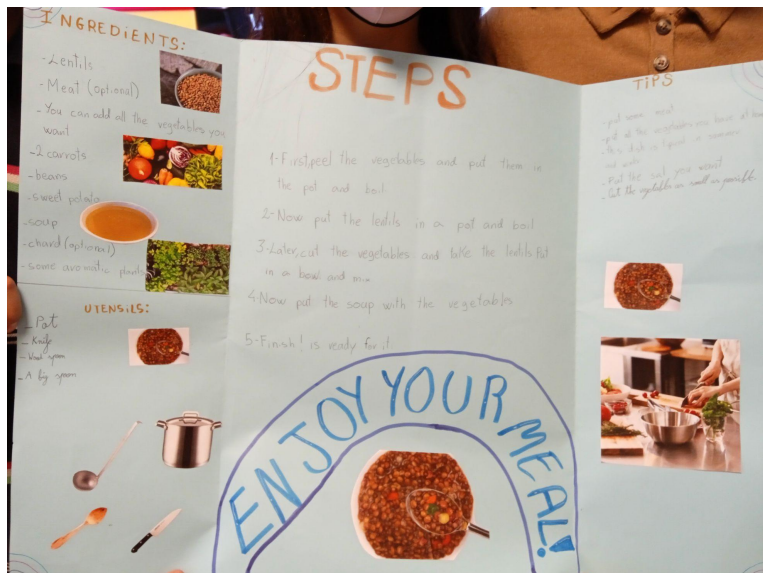 INGREDIENTS:
-Lentils
-Meat (optional)
-You can add all the vegetables you
want
-2 carrots
-beans
-sweet potato
-soup
-chard (optional)
-some aromatic plants
UTENSILS:
-Pot
-Knife
-Wood spoon
-A big spoon
STEPS
1-First,peel the vegetables and put them in
the pot and boil.
2-Now put the lentils in a pot and boil
3-Later,cut the vegetables and take the lentils.Put
in a bowl and mix
4 Now put the soup with the vegetables
5-Finish! is ready for it.
ENJOY YOUR MEAL!
TIPS
-put the vegetables
-this dish is
-Put the salt you want
-Cut the vegetable as small as possible.